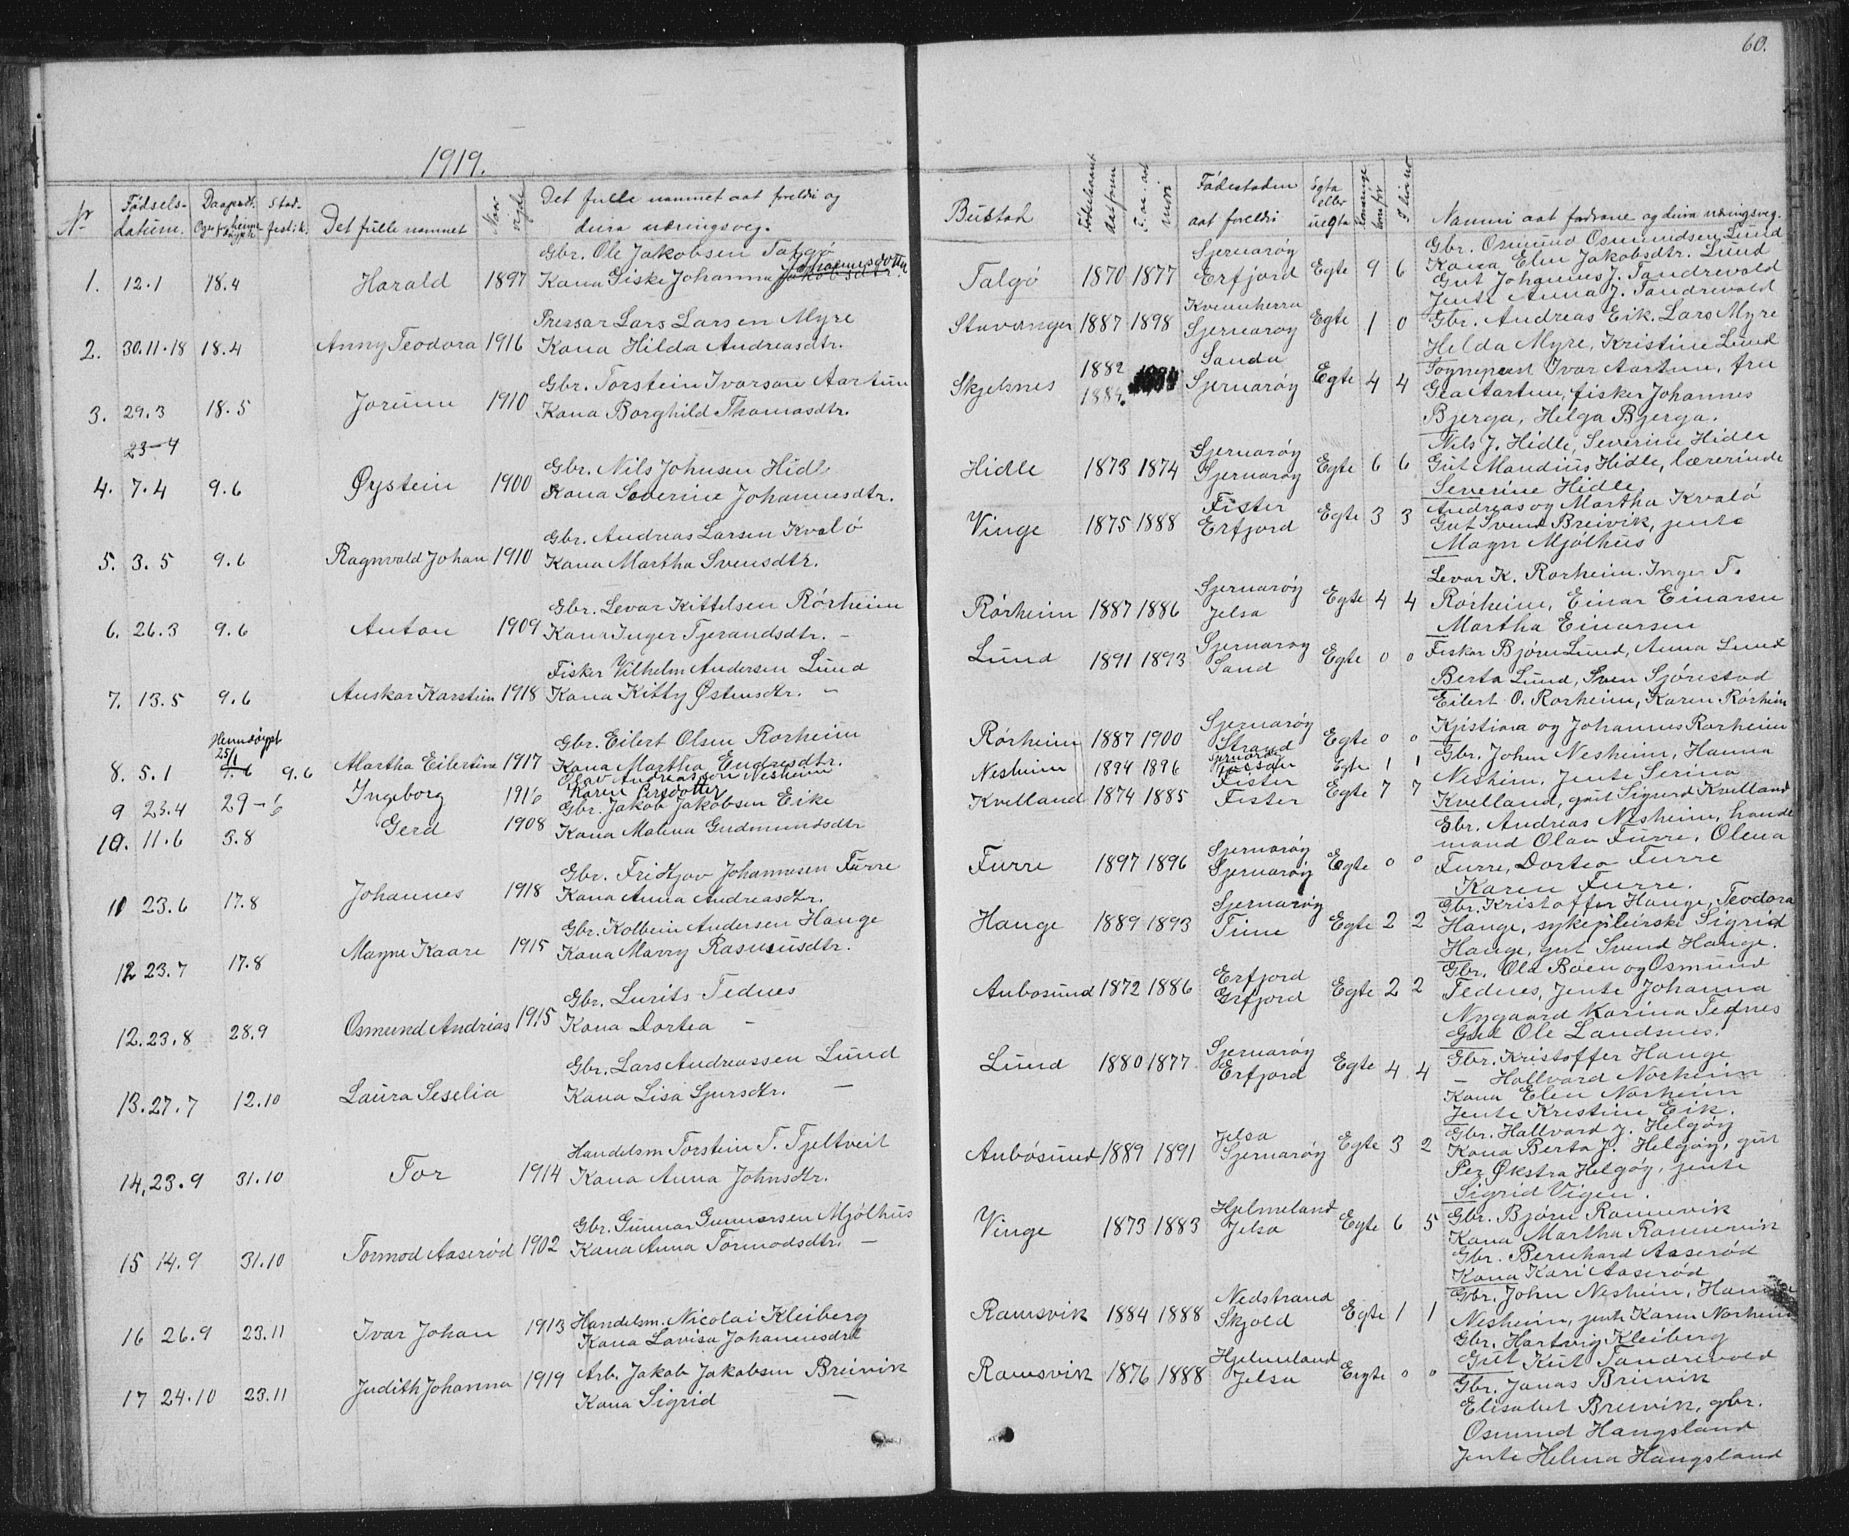 60.
1919.
Nr
Fødsels-
datum.
Det fulle nammet
Det fulle nammet aat foreldri og
deira næringsveg.
Bustad
Fødestaden
aat foreldri
Egta
eller
uegta
Nammi aat fadrane og deira næringsveg.
1. 12.1 18.4 Harald 1897
Gbr. Ole Jakobsen Talgø
Kona Giske Johanna Jakobsdtr. Johannesdotter
Talgø 1870 1877 Sjernarøy Erfjord Egte 9 6
Gbr. Osmund Osmundsen Lund
Kona Elen Jakobsdtr. Lund
Gut Johannes J. Tandrevold
Jente Anna J. Tandrevold
2. 30.11.18 18.4 Anny Teodora 1916
Pressar Lars Larsen Myre
Kona Hilda Andreasdtr.
Stavanger 1887 1898 Kvinnherra Sjernarøy Egte 1 0
Gbr. Andreas Eik. Lars Myre
Helda Myre, Kristine Lund
3. 29.3 18.5 Jorunn 1910
Gbr. Torstein Ivarson Aartun
Kona Borghild Thomasdtr.
Skjelsnes 1882 1884. Sanda Sjernarøy Egte 4 4
Sogneprest Ivar Aartun, fru
Gea Aartun, fisker Johannes
Bjerga, Helga Bjerga.
23-4
4. 7.4 9.6 Øystein 1900
Gbr. Nils Johnsen Hidle
Kona Severine Johannesdtr.
Hidle 1873 1874 Sjernarøy Sjernarøy Egte 6 6
Nils J. Hidle, Severine Hidle
Gut Mandius Hidle, lærerinde
Severine Hidle.
5. 3.5 9.6 Ragnvald Johan 1910
Gbr. Andreas Larsen Kvalø
Kona Martha Svensdtr.
Vinge 1875 1888 Fister Erfjord Egte 3 3
Andreas og Martha Kvalø
Gut Svend Breivik, jente
Magn Mjølhus
6. 26.3 9.6 Anton 1909
Gbr. Levar Kittelsen Rørheim
Kona Inger Tjerandsdtr. -
Rørheim 1887 1886 Sjernarøy Jelsa Egte 4 4
Levar K. Rørheim. Inger T.
Rørheim, Einar Einarsen
Martha Einarsen
7. 13.5 9.6 Anskar Karstein 1918
Fisker Vilhelm Andersen Lund
Kona Kitty Østensdtr. -
Lund 1891 1893 Sjernarøy Sand Egte 0 0
Fisker Bjørn Lund, Anna Lund
Berta Lund, Sven Sjørestad
8. 5.1 Heimdøypt 25/1 9.6 Martha Eilertine 1917
Gbr. Eilert Olsen Rørheim
Kona Martha Endresdtr.
Rørheim 1887 1900 Sjernarøy Strand Egte 0 0
Eilert O. Rørheim, Karen Rørheim
Kristiana og Johannes Rørheim
9 23.4 29-6 Ingeborg 1916
Olav Andreassen Nesheim
Karen Persdotter
Nesheim 1894 1896 Egte 1 1
Gbr. John Nesheim, Hanna
Nesheim, Jente Serina
10. 11.6 3.8 Gerd 1908
Gbr. Jakob Jakobsen Eike
Kona Malena Gudmundsdtr
Kvelland 1874 1885 Fister Fister Egte 7 7
Kvelland, gut Sigurd Kvelland
11 23.6 17.8 Johannes 1918
Gbr. Fridtjov Johannesen Furre
Kona Anna Andreasdtr.
Furre 1897 1896 Sjernarøy Sjernarøy Egte 0 0
Gbr. Andreas Nesheim, handels
mand Olav Furre, Olena
Furre, Dortea Furre
Karen Furre.
12 23.7 17.8 Magne Kaare 1915
Gbr. Kolbein Andersen Hauge
Kona Marry Rasmusdtr.
Hauge 1889 1893 Sjernarøy Time Egte 2 2
Gbr. Kristoffer Hauge, Teodora
Hauge, sykepleirske Sigrid
Hauge, gut Svend Hauge.
12. 23.8 28.9 Osmund Andrias 1915
Gbr. Lurits Tednes
Kona Dortea -
Aubøsund 1872 1886 Erfjord Erfjord Egte 2 2
Gbr. Ola Bøen og Osmund
Tednes, Jente Johanna
Nygaard Karina Tednes
Gut Ole Landsnes.
13. 27.7 12.10 Laura Seselia
Gbr. Lars Andreassen Lund
Kona Lisa Sjursdtr. -
Lund 1880 1877 Sjernarøy Erfjord Egte 4 4
Gbr. Kristoffer Hauge
- Hallvard Norheim
Kona Elen Norheim
Jente Kristine Eik.
14. 23.9 31.10 Tor 1914
Handelsm Torstein T. Tjeltveit
Kona Anna Johnsdtr.
Aubøsund 1889 1891 Jelsa Sjernarøy Egte 3 2
Gbr. Hallvard J. Helgøy
Kona Berta J. Helgøy, gut
Per Økstra Helgøy, jente
Sigrid Vigen.
15 14.9 31.10 Tormod Aaserød 1902
Gbr. Gunnar Gunnarsen Mjølhus
Kona Anna Tormodsdtr. -
Vinge 1873 1883 Hjelmeland Jelsa Egte 6 5
Gbr. Bjørn Ramsvik
Kona Martha Ramsvik
Gbr. Bernhard Aaserød
Kona Kari Aaserød
16 26.9 23.11 Ivar Johan 1913
Handelsm. Nicolai Kleiberg
Kona Lovisa Johannesdtr
Ramsvik 1884 1888 Nedstrand Skjold Egte 1 1
Gbr. John Nesheim, Hanna
Nesheim, jente Karen Norheim
Gbr. Hartvig Kleiberg
Gut Kut Tandrevold
17 24.10 23.11 Judith Johanna 1919
Arb. Jakob Jakobsen Breivik
Kona Sigrid -
Ramsvik 1876 1888 Hjelmeland Jelsa Egte 0 0
Gbr. Jonas Breivik
Elisabet Breivik, gbr.
Osmund Haugsland
Jente Helena Haugsland